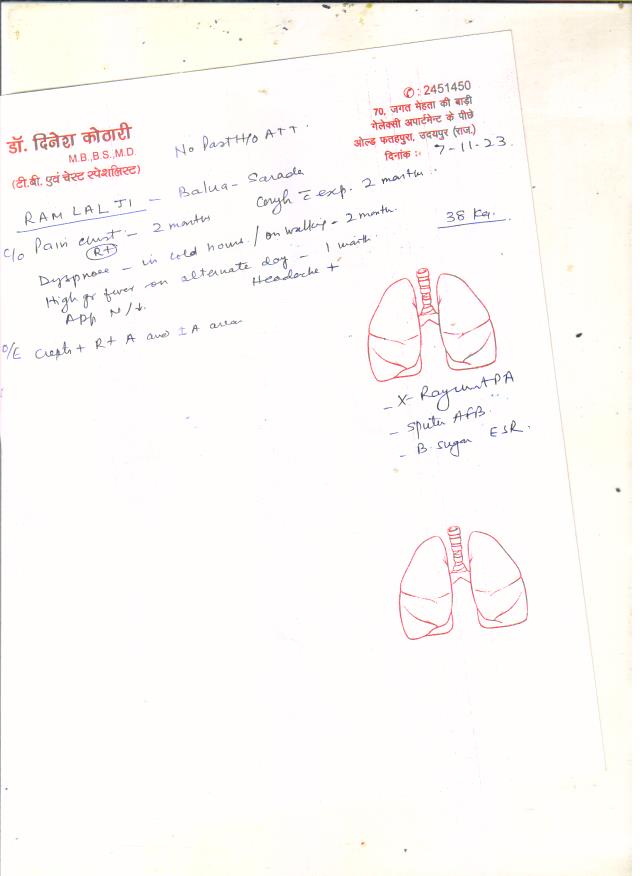 ✆: 2451450
70, जगत मेहता की बाड़ी
गेलेक्सी अपार्टमेन्ट के पीछे
ओल्ड फतहपुरा, उदयपुर (राज.)
दिनांक :- 7-11-23.
डॉ. दिनेश कोठारी
M.B.,B.S.,M.D.
(टी.बी. एवं चेस्ट स्पेशलिस्ट)
No Past H/o ATT.
RAM LAL JI - Balua - Sarada
C/o Pain chest - 2 months
(R+)
Cough c̄ exp. 2 months.
38 Kg.
Dyspnoea - in cold hours / on walking - 2 month.
High gr fever on alternate day - 1 month
App N/↓.
Headache +
O/E Crepts + R+ A and IA area
- X-Ray chest PA
- Sputm AFB.
- B. sugar ESR.